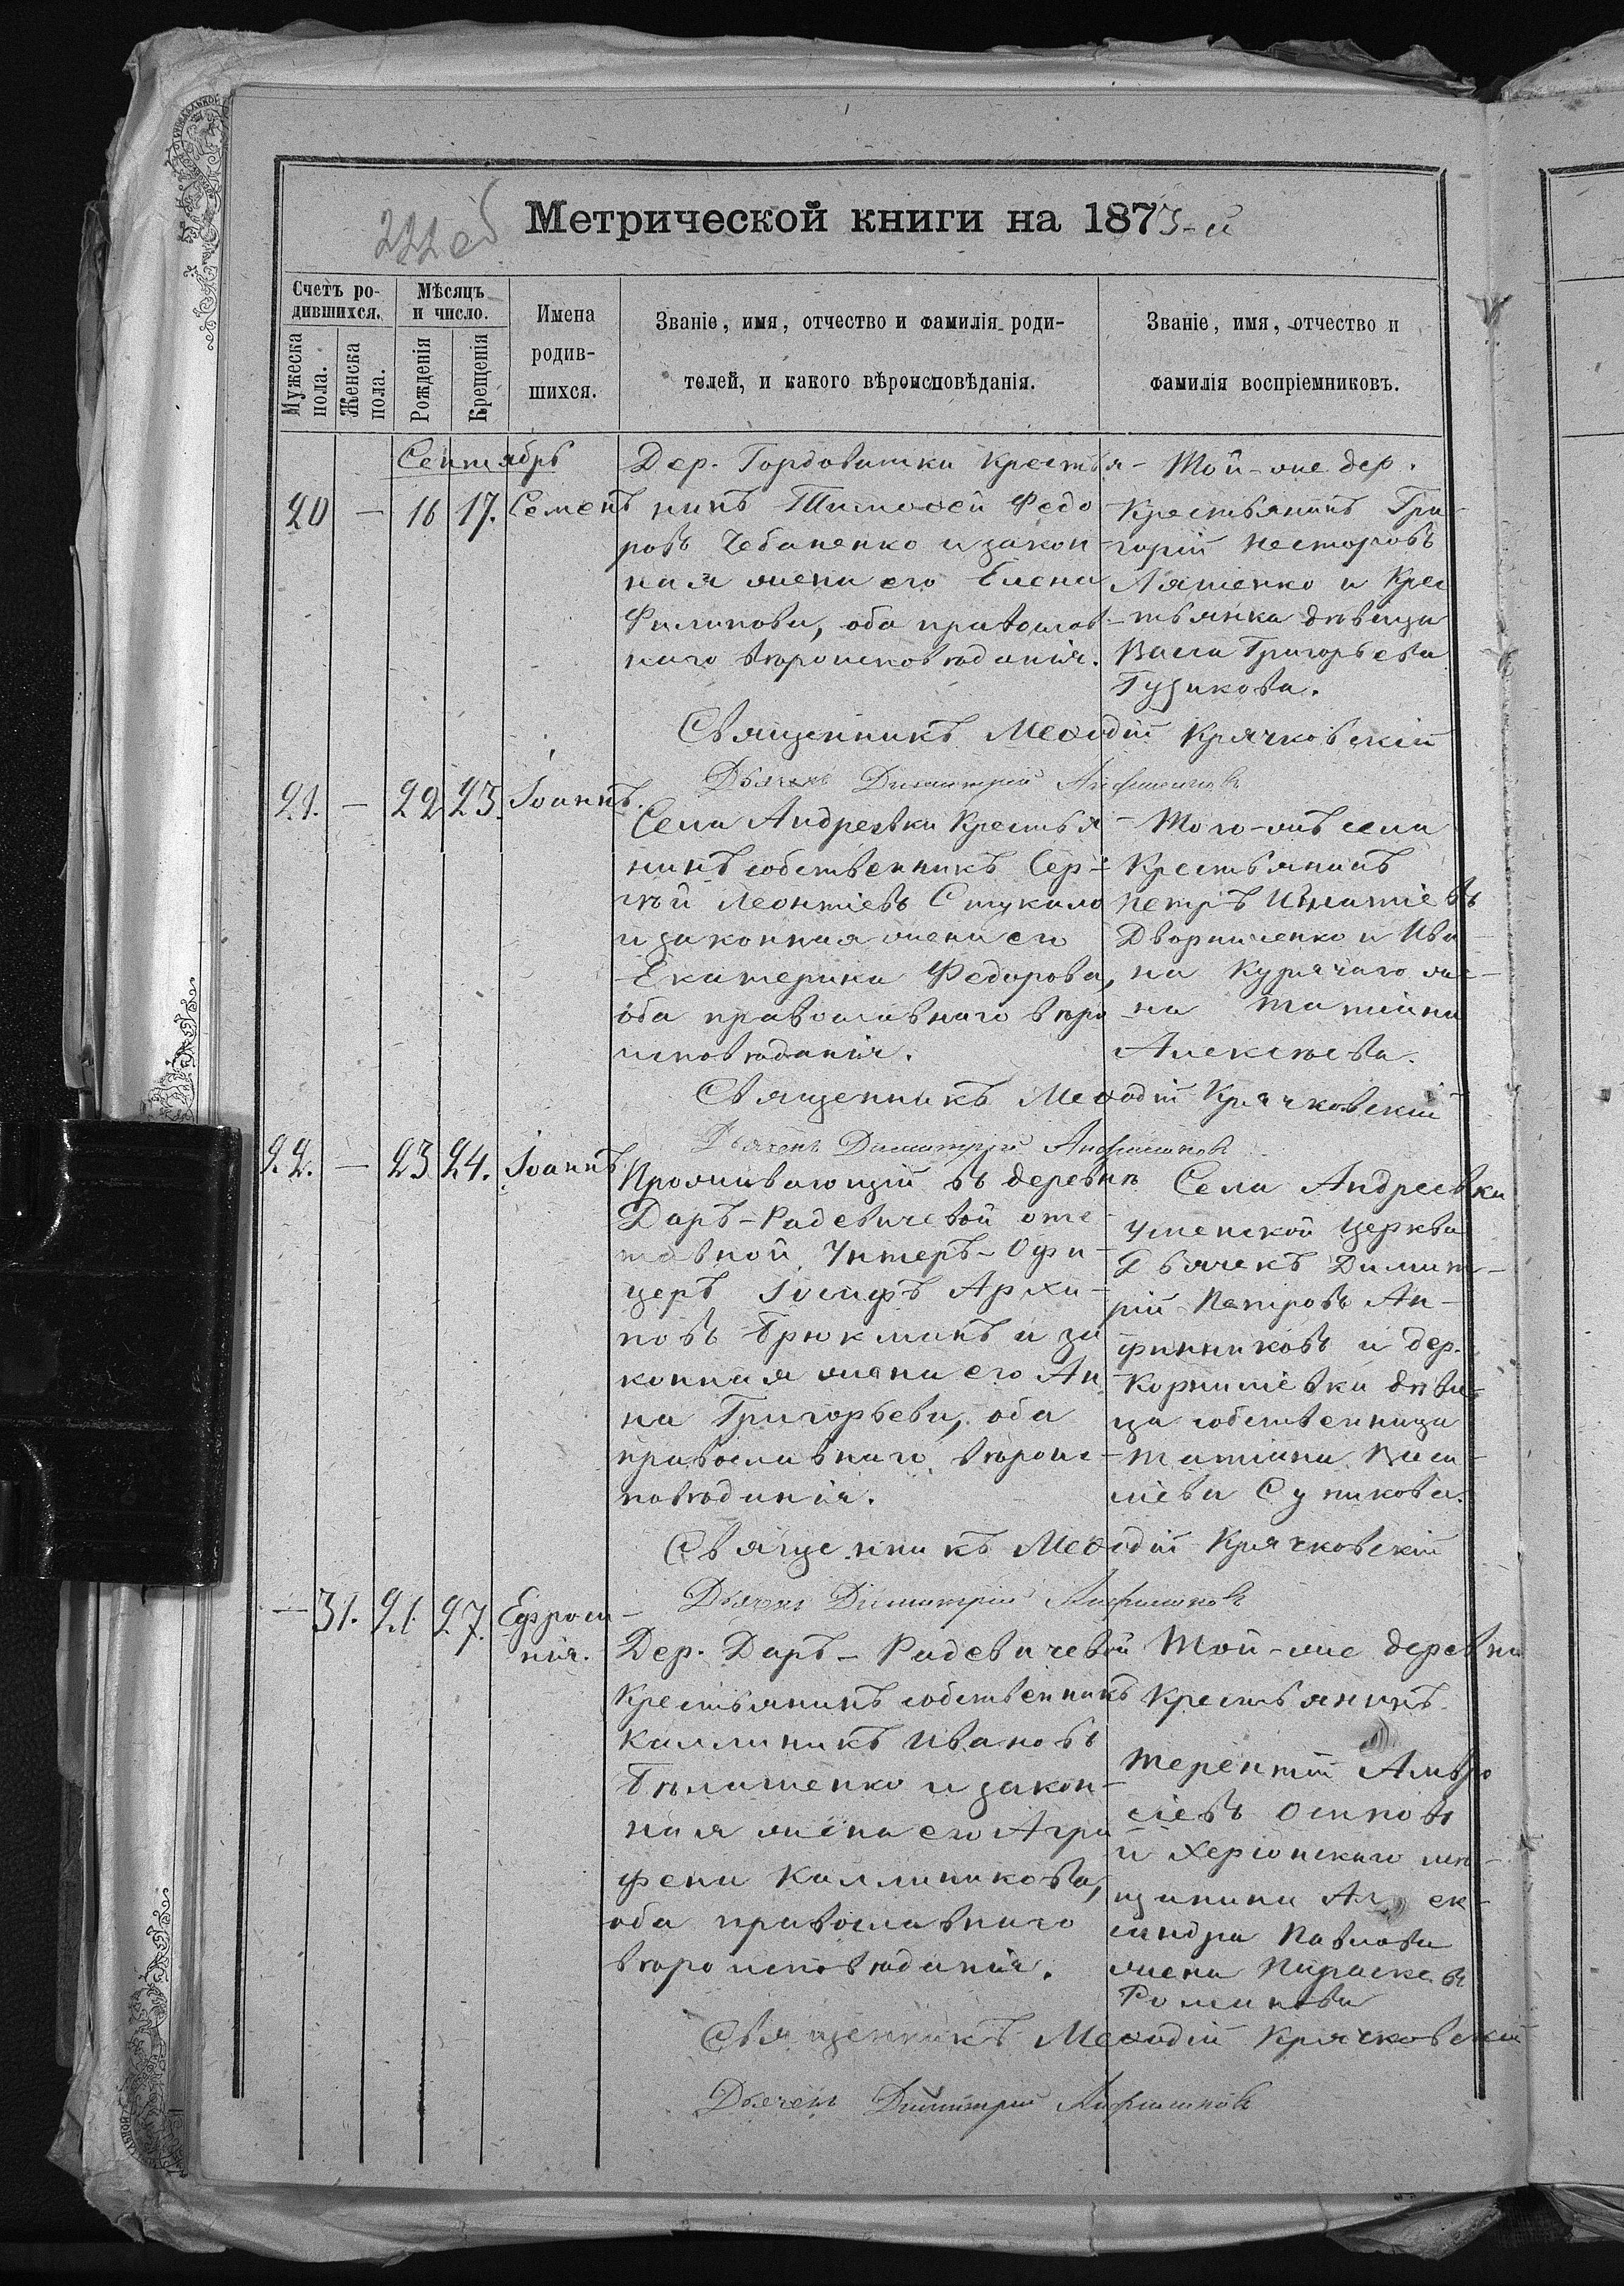 222об
Метрической книги на 1873-й
Счетъ ро-
дившихся.
Мужеска
пола.
Женска
пола.
Мѣсяцъ
и число.
Рожденія
Крещенія
Имена
родив-
шихся.
Званіе, имя, отчество и фамилія роди-
телей, и какого вѣроисповѣданія.
Званіе, имя, отчество и
фамилія воспріемниковъ.
Сентябрь
20 — 16 17. Семенъ
Дер. Гордовитки крестья-
нинъ Тимоѳей Федо
ровъ Чебаненко и закон-
ная жена его Елена
Филипова, оба православ-
наго вѣроисповѣданія.
Той-же дер.
Крестьянинъ Гри-
горій Несторовъ
Ляшенко и Крес
тьянка дѣвица
Васса Григорьева
Гузикова.
Священникъ Меѳодій Крячковскій
Дьячекъ Димитрій Анфинниковъ
21. — 22 23. Іоаннъ.
Села Андреевки крестья
нинъ собственникъ Сер-
гѣй Леонтіевъ Стукало
и законная жена его
Екатерина Федорова,
оба православнаго вѣро
исповѣданія.
Того-жъ села
Крестьянинъ
Петръ Игнатіевъ
Дворниченко и Ива-
на Курячаго же-
на Татіана
Алексѣева.
Священникъ Меѳодій Крячковскій
Дьячекъ Димитрій Анфинниковъ
22. — 23 24. Іоаннъ
Проживающій въ деревнѣ
Даръ-Радевичевой отс-
тавной Унтеръ-Офи-
церъ Іосифъ Архи-
повъ Брюкманъ и за
конная жена его Ан
на Григорьева, оба
православнаго вѣроис-
повѣданія.
Села Андреевки
Успенской церкви
Дьячекъ Димит-
рій Петровъ Ан-
финниковъ и дер.
Корниліевки дѣви-
ца собственница
Татіана Васи-
ліева Супикова.
Священникъ Меѳодій Крячковскій
Дьячекъ Димитрій Анфинниковъ
— 31. 21 27. Ефроси-
нія.
Дер. Даръ-Радевичевой
Крестьянинъ собственникъ
Каллиникъ Ивановъ
Бѣлашенко и закон-
ная жена его Агра
фена Каллиникова,
оба православнаго
вѣроисповѣданія.
Той-же деревни
Крестьянинъ
Терентій Амвро
сіевъ Осиповъ
и Херсонскаго мѣ-
щанина Алек-
сандра Павлова
жена Параскева
Романова
Священникъ Меѳодій Крячковскій
Дьячекъ Димитрій Анфинниковъ